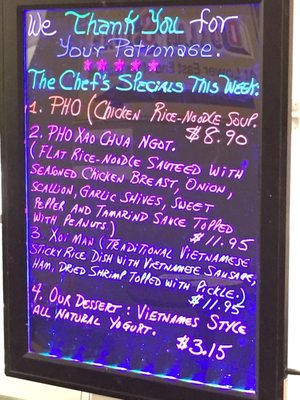 We Thank You for
Your Patronage.
The Chef's Specials This Week:
1. PHO (Chicken Rice-Noodle Soup.
$8.90
2. PHO XAO CHUA NGOT.
(Flat Rice-Noodle Sauteed with
Seasoned Chicken Breast, Onion,
Scallion, Garlic Shives, Sweet
Pepper and Tamarind Sauce Topped
with Peanuts.) $11.95
3. XOI MAN (Traditional Vietnamese
Sticky Rice Dish with Vietnamese Sausage,
Ham, Dried Shrimp Topped with Pickle.)
$11.95
4. Our Dessert: Vietnames Style
All Natural Yogurt.
$3.15